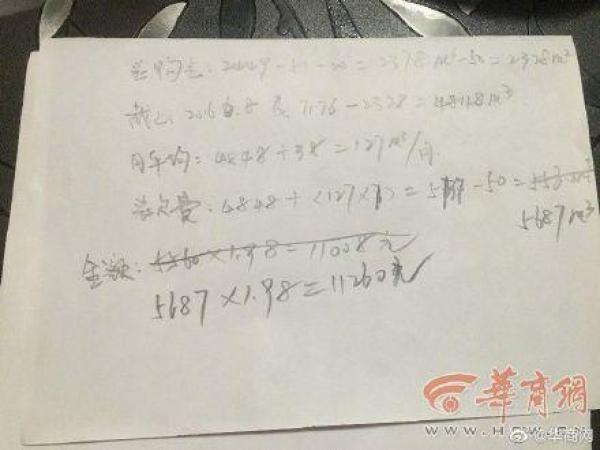 总购气: 2449--20=2378m³-50=2328m³
截止2016.8 7176-2328=4848m³
月平均: 4848÷38=127m³/月.
总欠费: 4848+(127×)=-50=
5687m³
金额: 5560×1.98=11008元
5687×1.98=11260元
华商网
WWW.HSW.CN
@华商网